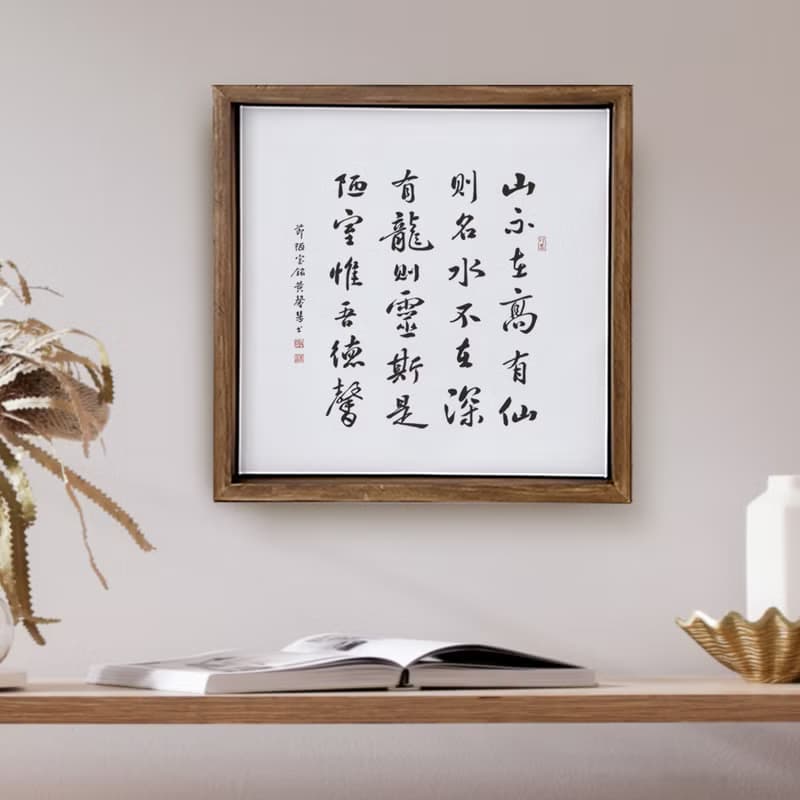 山不在高有仙
则名水不在深
有龍则靈斯是
陋室惟吾德馨
节陋室铭黄馨慧书